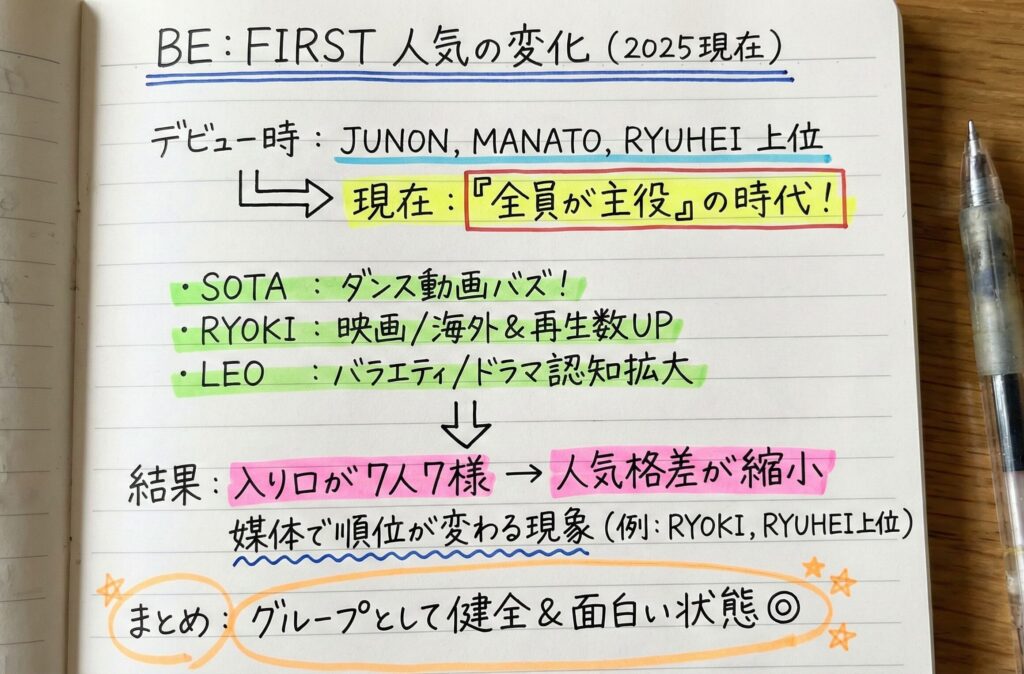 BE:FIRST 人気の変化(2025現在)
デビュー時:JUNON, MANATO, RYUHEI 上位
現在:『全員が主役』の時代!
・SOTA :ダンス動画バズ!
・RYOKI:映画/海外&再生数UP
・LEO :バラエティ/ドラマ認知拡大
結果:入り口が7人7様→人気格差が縮小
媒体で順位が変わる現象(例:RYOKI, RYUHEI上位)
まとめ:グループとして健全&面白い状態◎